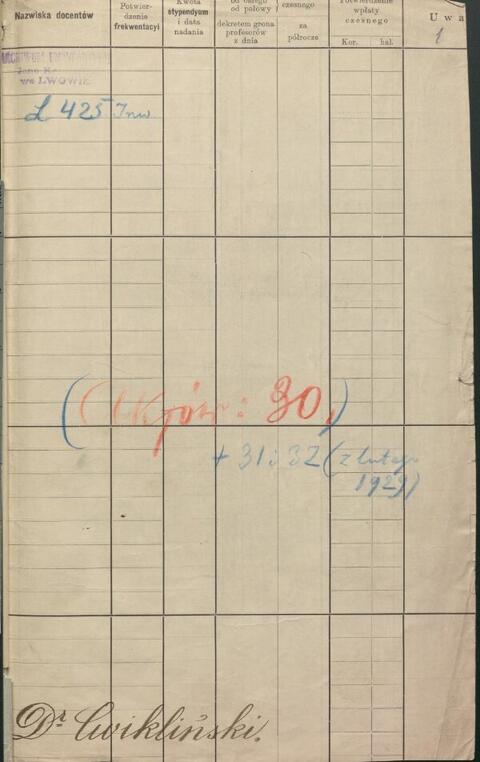 Nazwiska docentów
Potwier-
dzenie
frekwentacyi
Kwota
stypendyum
i data
nadania
od całego
od połowy
dekretem grona
profesorów
z dnia
czesnego
za
półrocze
Potwierdzenie
wpłaty
czesnego
Kor. hal.
Uwa
1
we LWOWIE
L 425 Inw
30
+ 31 i 32 (z lutego
1929)
Dr Cwikliński.